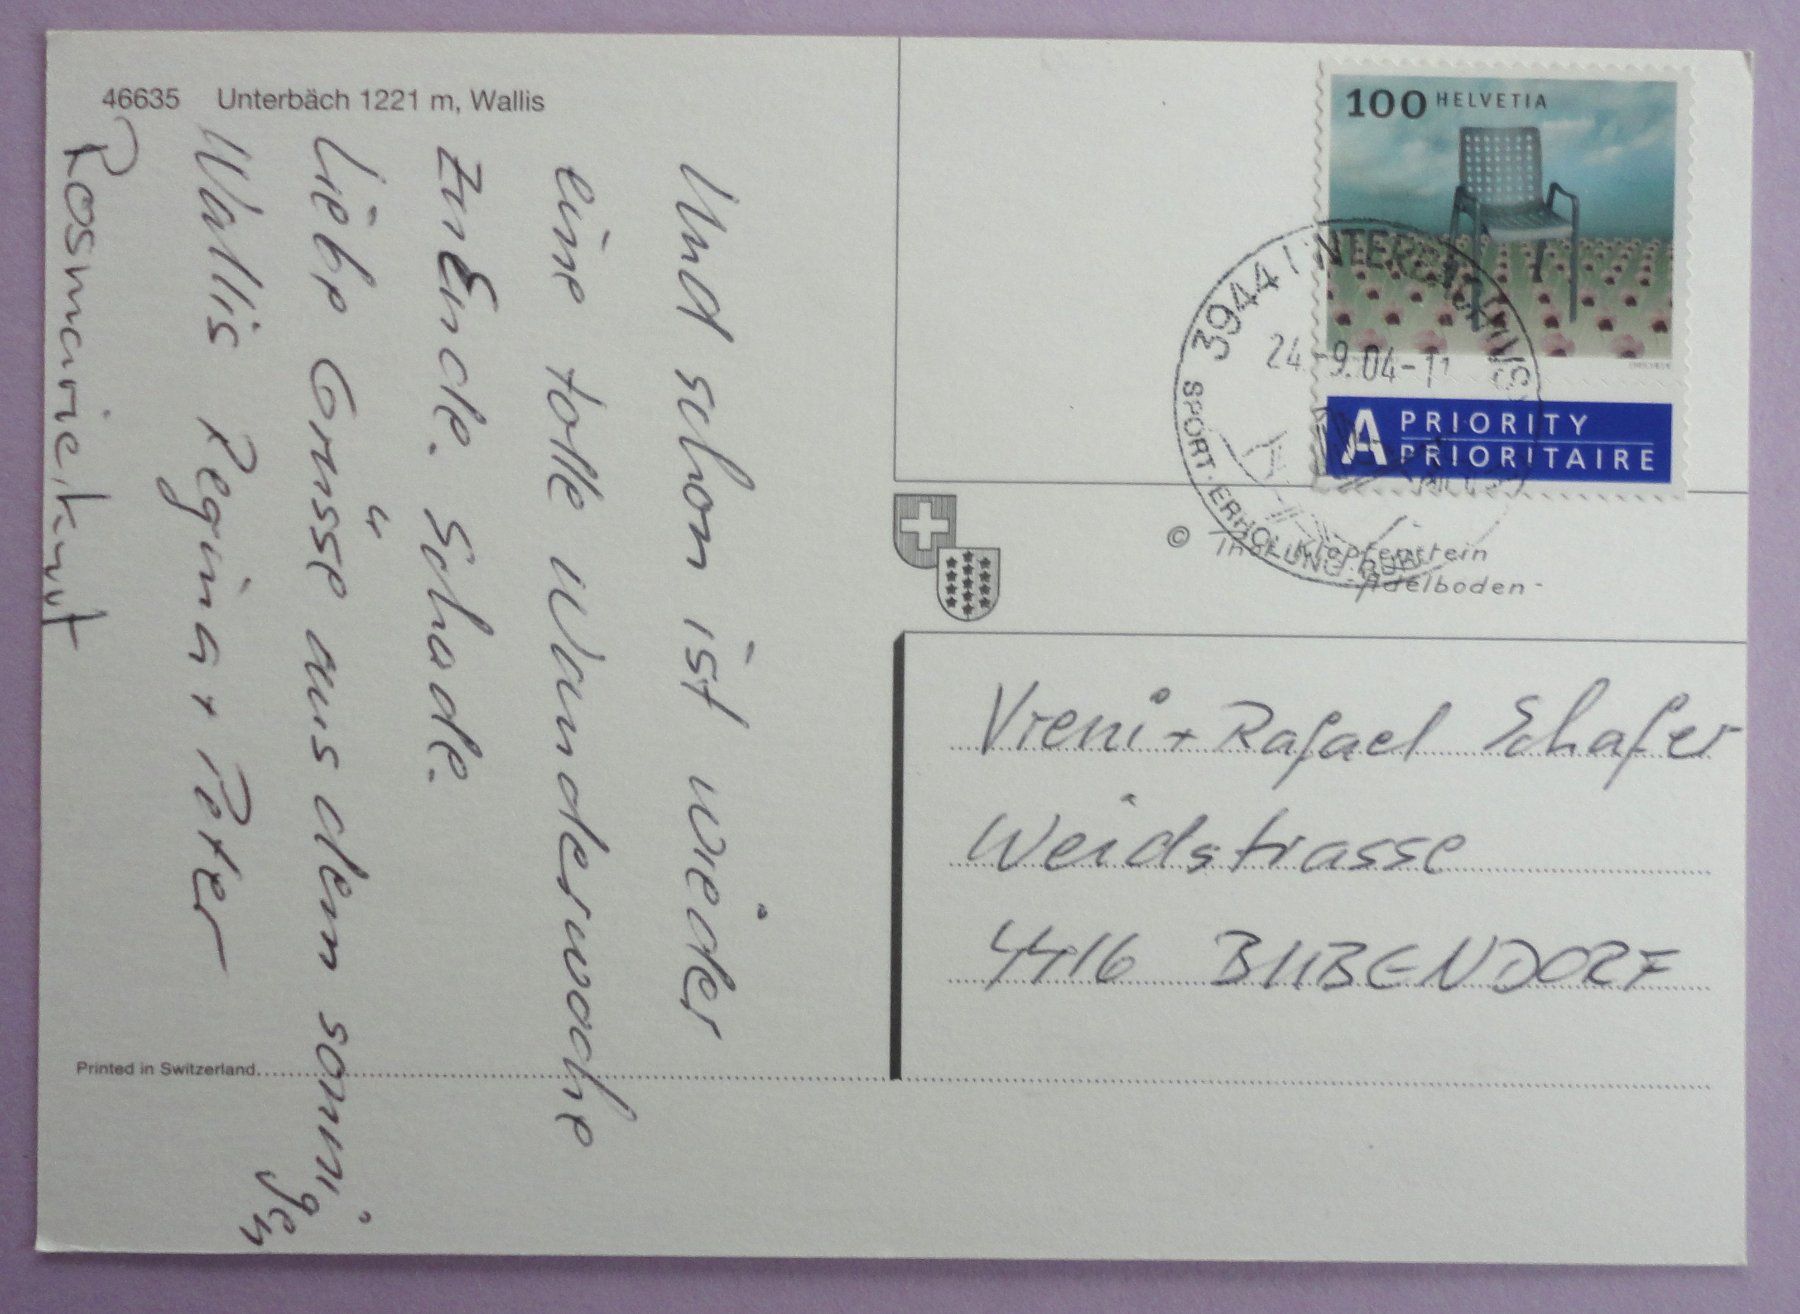 46635 Unterbäch 1221 m, Wallis
Und schon ist wieder
eine tolle Wanderwoche
zu Ende. Schade.
Liebe Grüsse aus dem sonnigen
Wallis Regina + Peter
Rosmarie, Kurt
Printed in Switzerland
100 HELVETIA
A PRIORITY
PRIORITAIRE
3944 UNTERBÄCH (VS)
24.-9.04-11
SPORT · ERHOLUNG
© Thor Klopfenstein
- Adelboden -
Vreni + Rafael Schafer
Weidstrasse
4416 BUBENDORF